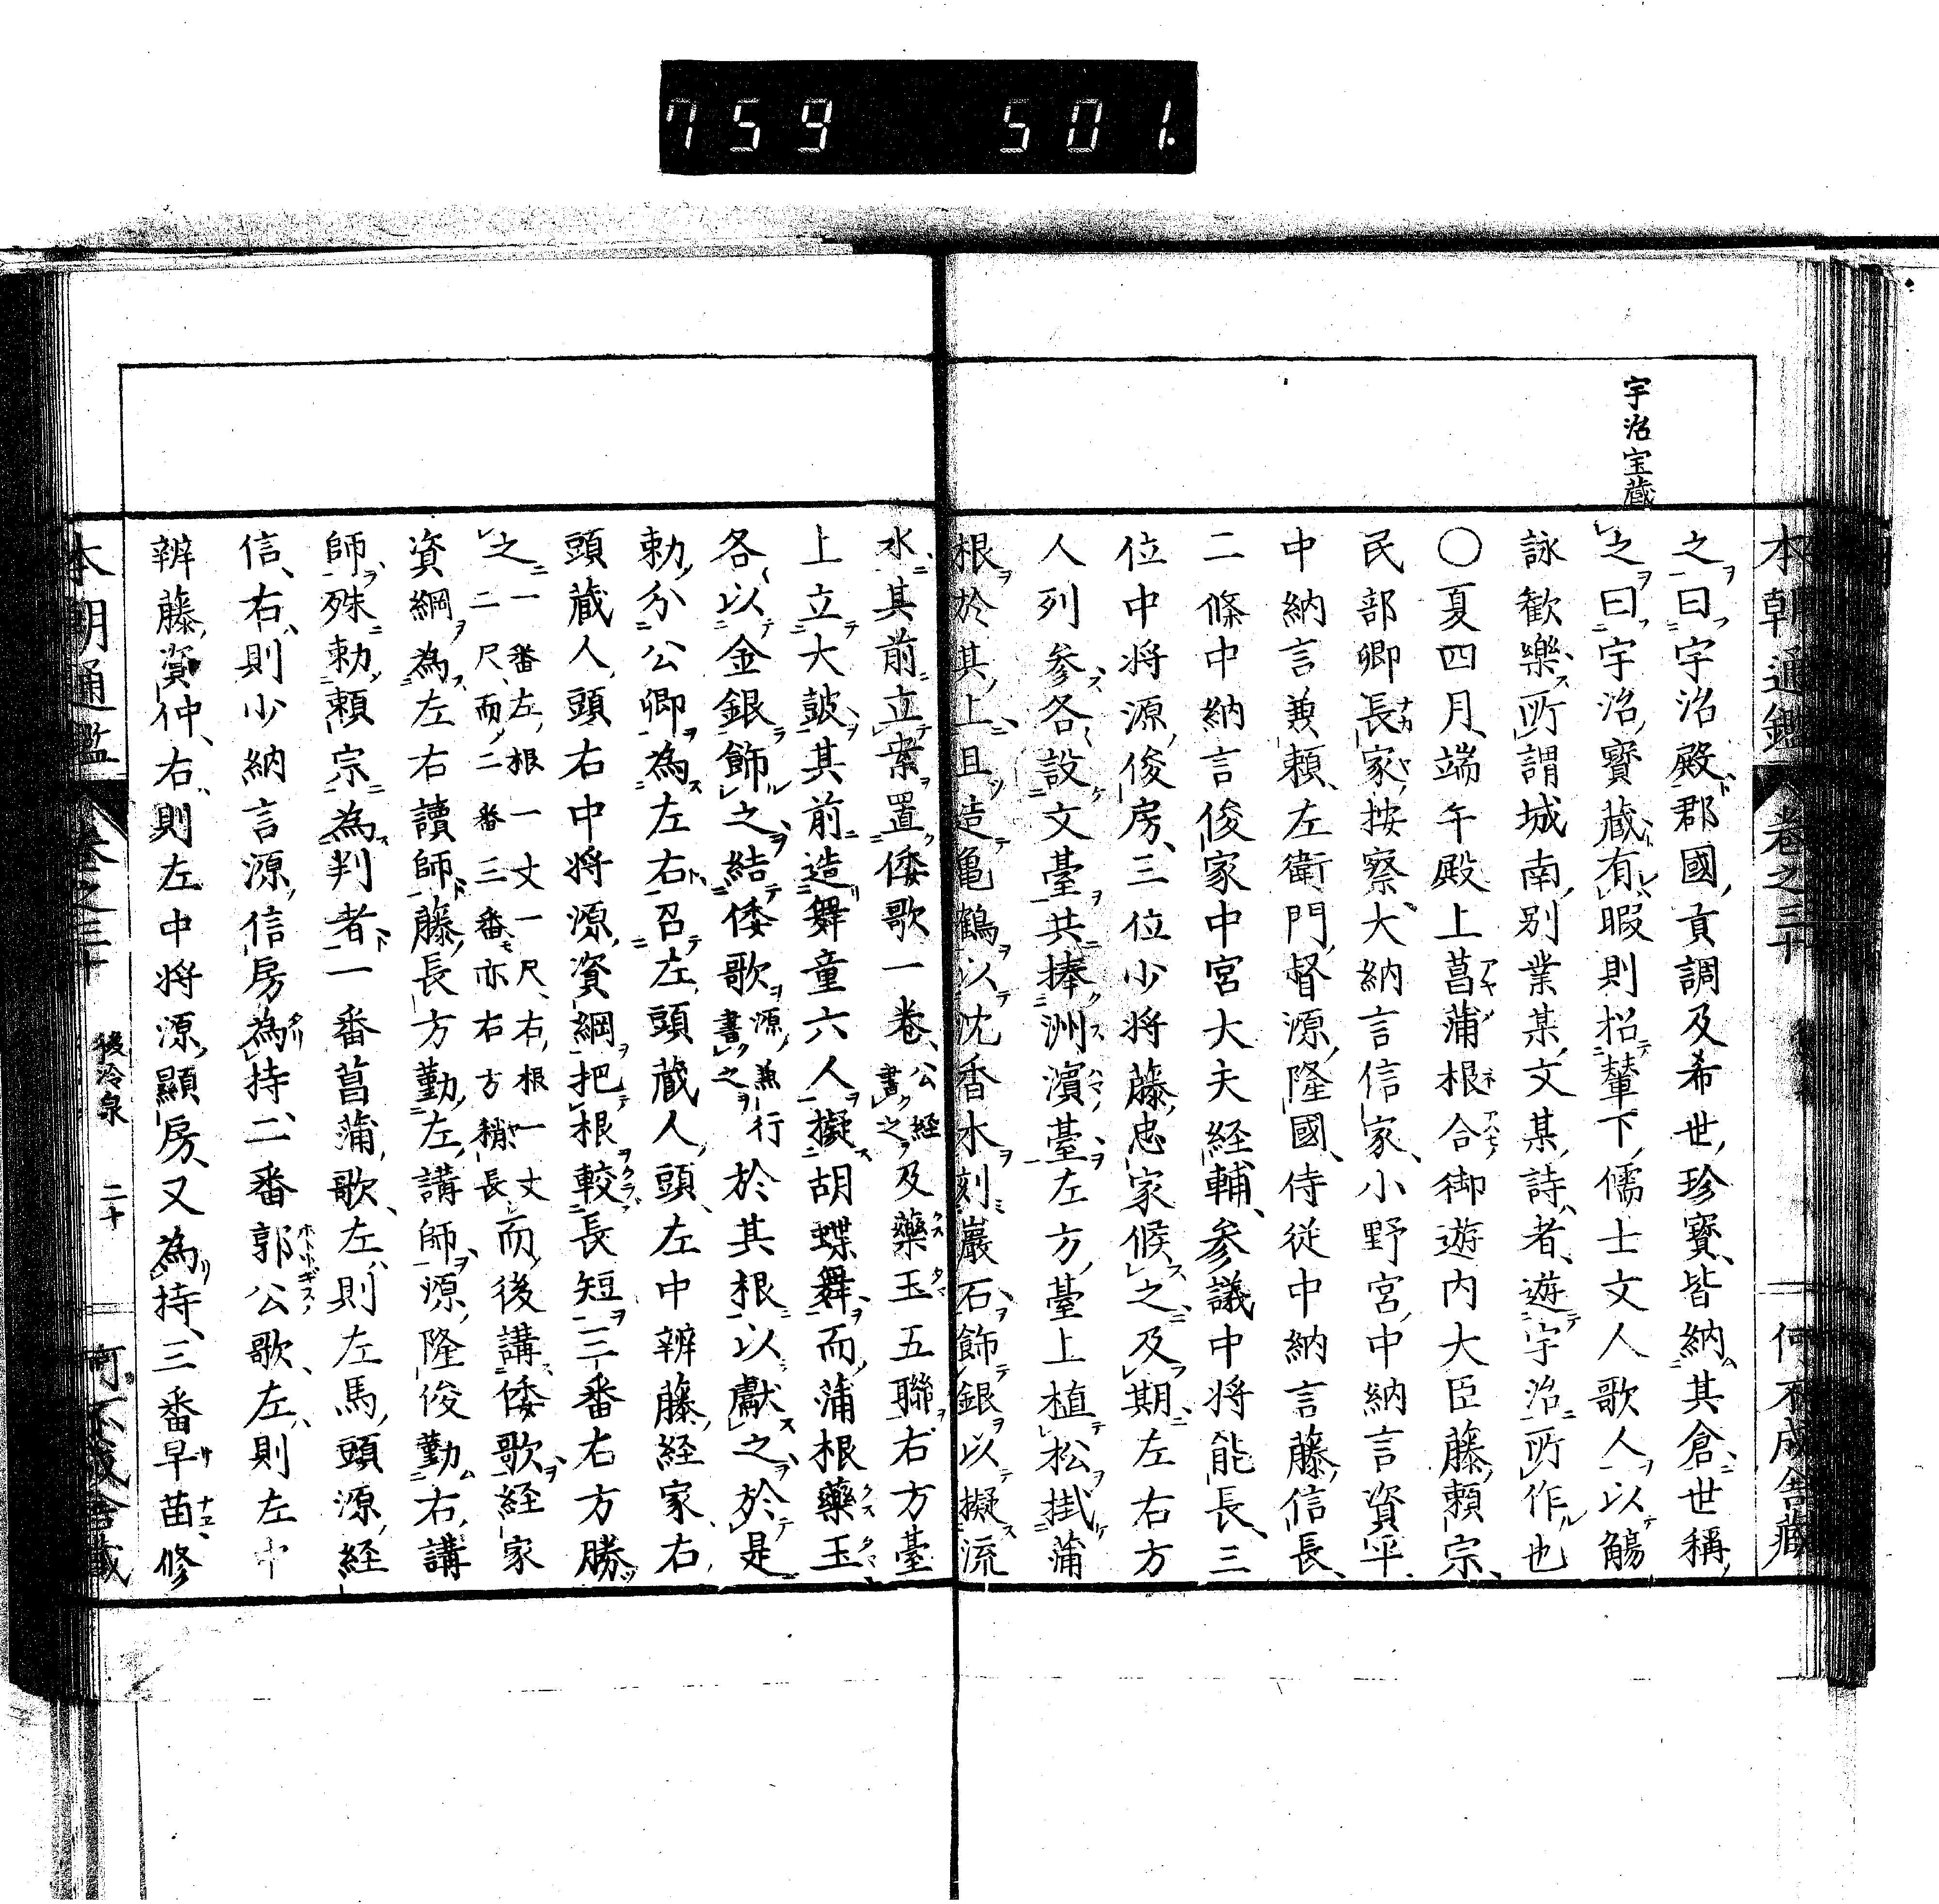 759 501.
宇治宝蔵
本朝通鑑 卷之三十 何不成舎蔵
之曰宇治殿郡國貢調及希世珍寳皆納其倉世稱
之曰宇治寳蔵有暇則招輦下儒士文人歌人以觴
詠歓樂所謂城南別業某文某詩者遊宇治所作也
〇夏四月端午殿上菖蒲根合御遊内大臣藤頼宗
民部卿長家按察大納言信家小野宮中納言資平
中納言兼頼左衛門督源隆國侍従中納言藤信長
二條中納言俊家中宮大夫経輔参議中将能長三
位中将源俊房三位少将藤忠家候之及期左右方
人列参各設文臺共捧洲濱臺左方臺上植松掛蒲
根於其上且造亀鶴以沈香木刻巖石飾銀以擬流
水其前立案置倭歌一巻公経書之及藥玉五聯右方臺
上立大皷其前造舞童六人擬胡蝶舞而蒲根藥玉
各以金銀飾之結倭歌源兼行書之於其根以獻之於是
勅分公卿為左右召左頭蔵人頭左中辨藤経家右
頭蔵人頭右中将源資綱把根較長短三番右方勝
之一番左根一丈一尺右根一丈二尺而二番三番亦右方稍長而後講倭歌経家
資綱為左右讀師藤長方勤左講師源隆俊勤右講
師殊勅頼宗為判者一番菖蒲歌左則左馬頭源経
信右則少納言源信房為持二番郭公歌左則左中
辨藤資仲右則左中将源顯房又為持三番早苗修
本朝通鑑 卷之三十 後冷泉 二十 何不成舎蔵